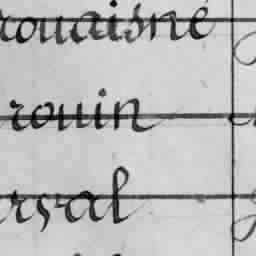 rouaisné
rouin
rsal